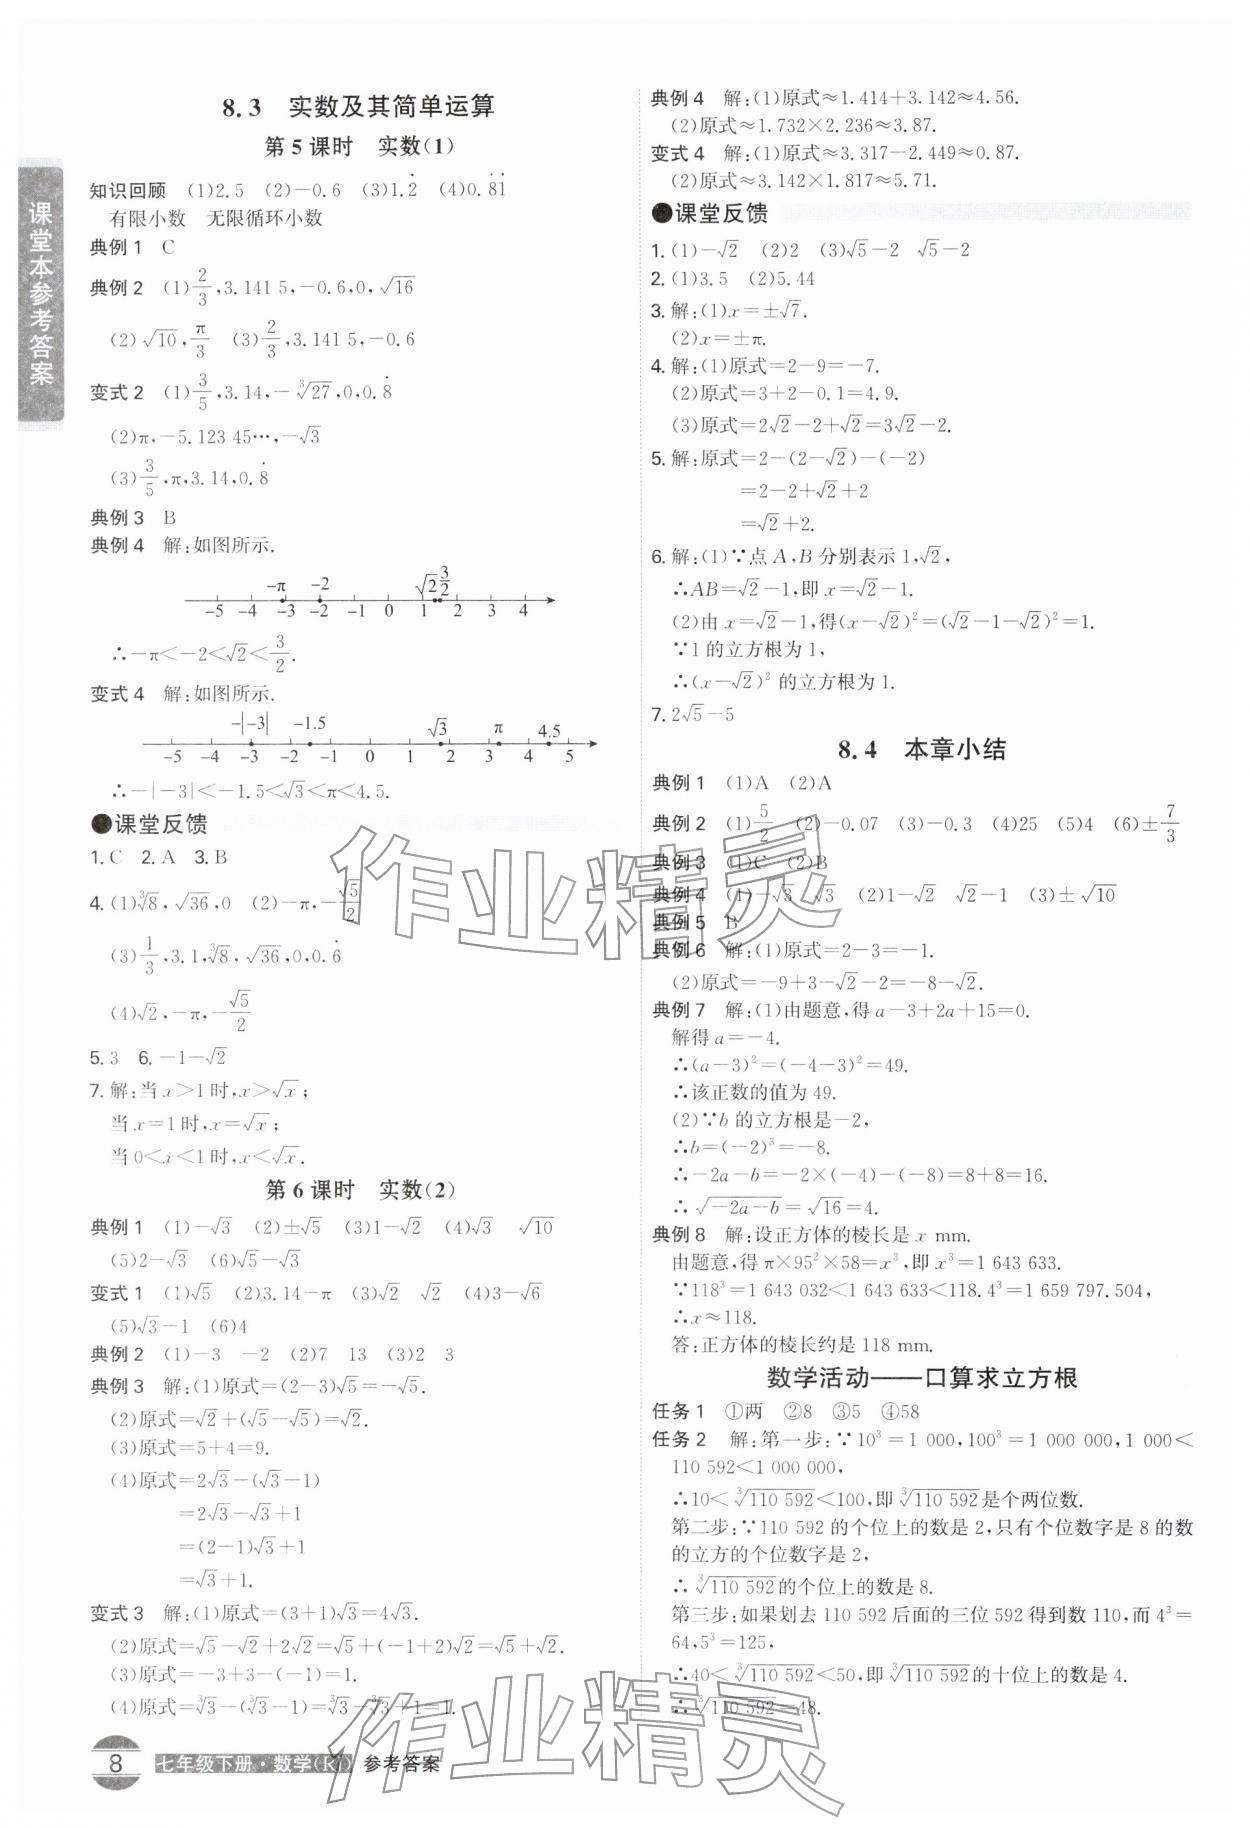 课堂本参考答案
8.3 实数及其简单运算
第5课时 实数(1)
知识回顾 (1)2.5 (2)-0.6 (3)1.2̇ (4)0.8̇1̇
有限小数 无限循环小数
典例1 C
典例2 (1)2/3,3.141 5,-0.6,0,√16
(2)√10,π/3 (3)2/3,3.141 5,-0.6
变式2 (1)3/5,3.14,-∛27,0,0.8̇
(2)π,-5.123 45…,-√3
(3)3/5,π,3.14,0.8̇
典例3 B
典例4 解:如图所示.
-π -2 √2 3/2
-5 -4 -3 -2 -1 0 1 2 3 4
∴-π<-2<√2<3/2.
变式4 解:如图所示.
-|-3| -1.5 √3 π 4.5
-5 -4 -3 -2 -1 0 1 2 3 4 5
∴-|-3|<-1.5<√3<π<4.5.
●课堂反馈
1. C 2. A 3. B
4. (1)∛8,√36,0 (2)-π,-√5/2
(3)1/3,3.1,∛8,√36,0,0.6̇
(4)√2,-π,-√5/2
5. 3 6. -1-√2
7. 解:当x>1时,x>√x;
当x=1时,x=√x;
当0<x<1时,x<√x.
第6课时 实数(2)
典例1 (1)-√3 (2)±√5 (3)1-√2 (4)√3 √10
(5)2-√3 (6)√5-√3
变式1 (1)√5 (2)3.14-π (3)√2 √2 (4)3-√6
(5)√3-1 (6)4
典例2 (1)-3 -2 (2)7 13 (3)2 3
典例3 解:(1)原式=(2-3)√5=-√5.
(2)原式=√2+(√5-√5)=√2.
(3)原式=5+4=9.
(4)原式=2√3-(√3-1)
=2√3-√3+1
=(2-1)√3+1
=√3+1.
变式3 解:(1)原式=(3+1)√3=4√3.
(2)原式=√5-√2+2√2=√5+(-1+2)√2=√5+√2.
(3)原式=-3+3-(-1)=1.
(4)原式=∛3-(∛3-1)=∛3-∛3+1=1.
8 七年级下册·数学(RJ) 参考答案
典例4 解:(1)原式≈1.414+3.142≈4.56.
(2)原式≈1.732×2.236≈3.87.
变式4 解:(1)原式≈3.317-2.449≈0.87.
(2)原式≈3.142×1.817≈5.71.
●课堂反馈
1. (1)-√2 (2)2 (3)√5-2 √5-2
2. (1)3.5 (2)5.44
3. 解:(1)x=±√7.
(2)x=±π.
4. 解:(1)原式=2-9=-7.
(2)原式=3+2-0.1=4.9.
(3)原式=2√2-2+√2=3√2-2.
5. 解:原式=2-(2-√2)-(-2)
=2-2+√2+2
=√2+2.
6. 解:(1)∵点A,B分别表示1,√2,
∴AB=√2-1,即x=√2-1.
(2)由x=√2-1,得(x-√2)²=(√2-1-√2)²=1.
∵1的立方根为1,
∴(x-√2)²的立方根为1.
7. 2√5-5
8.4 本章小结
典例1 (1)A (2)A
典例2 (1)5/2 (2)-0.07 (3)-0.3 (4)25 (5)4 (6)±7/3
典例3 (1)C (2)B
典例4 (1)-√3 √3 (2)1-√2 √2-1 (3)±√10
典例5 B
典例6 解:(1)原式=2-3=-1.
(2)原式=-9+3-√2-2=-8-√2.
典例7 解:(1)由题意,得a-3+2a+15=0.
解得a=-4.
∴(a-3)²=(-4-3)²=49.
∴该正数的值为49.
(2)∵b的立方根是-2,
∴b=(-2)³=-8.
∴-2a-b=-2×(-4)-(-8)=8+8=16.
∴√(-2a-b)=√16=4.
典例8 解:设正方体的棱长是x mm.
由题意,得π×95²×58=x³,即x³=1 643 633.
∵118³=1 643 032<1 643 633<118.4³=1 659 797.504,
∴x≈118.
答:正方体的棱长约是118 mm.
数学活动——口算求立方根
任务1 ①两 ②8 ③5 ④58
任务2 解:第一步:∵10³=1 000,100³=1 000 000,1 000<
110 592<1 000 000,
∴10<∛110 592<100,即∛110 592是个两位数.
第二步:∵110 592的个位上的数是2,只有个位数字是8的数
的立方的个位数字是2,
∴∛110 592的个位上的数是8.
第三步:如果划去110 592后面的三位592得到数110,而4³=
64,5³=125,
∴40<∛110 592<50,即∛110 592的十位上的数是4.
∴∛110 592=48.
作业精灵
作业精灵